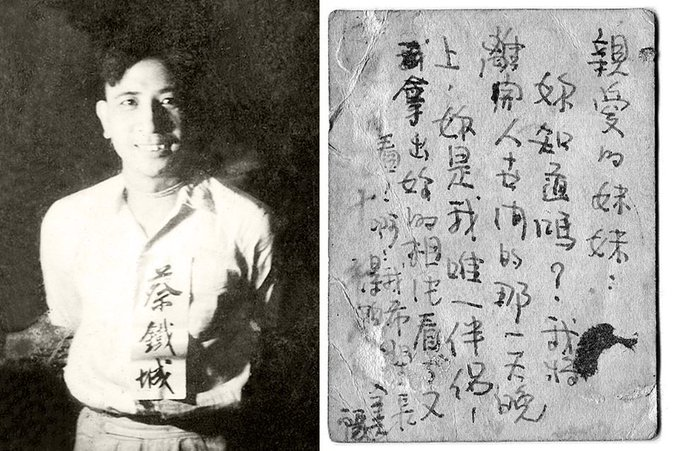 蔡鐵城
親愛的妹妹：
妳知道嗎？我將
離開人世間的那一天晚
上，妳是我唯一伴侶，
我拿出妳的相片看了又
看